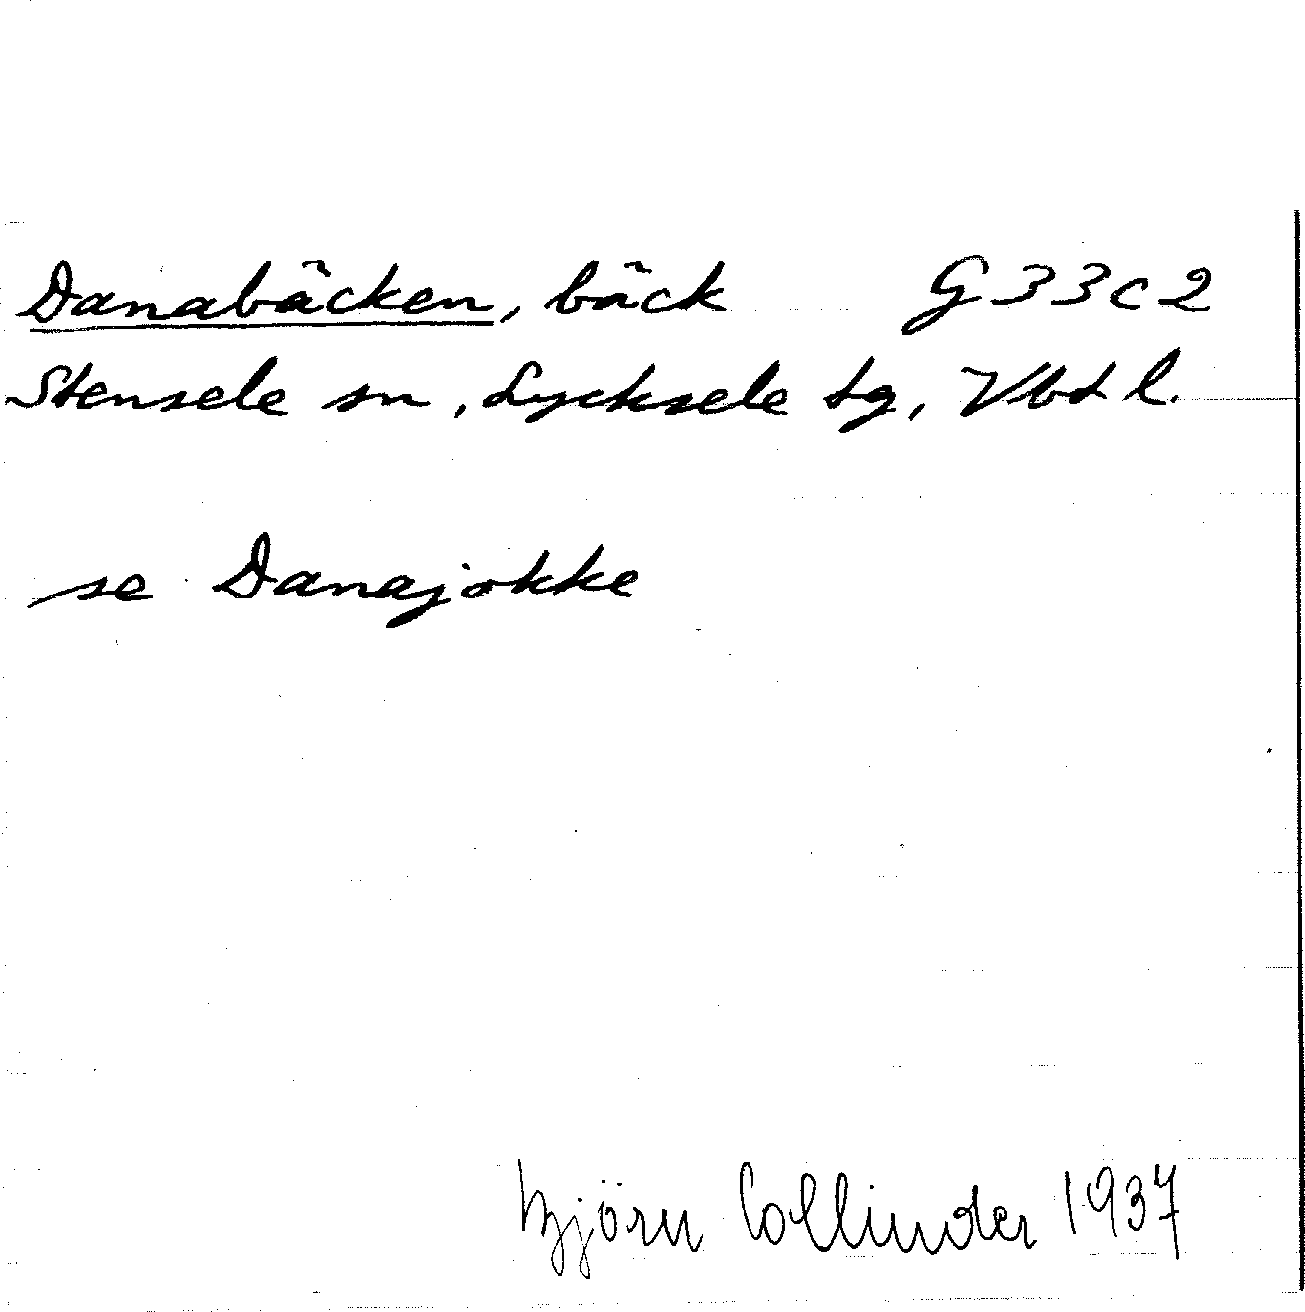 Danabäcken, bäck G33c2
Stensele sn, Lycksele tg, Vbtl.
se Danajokke
Björn Collinder 1937